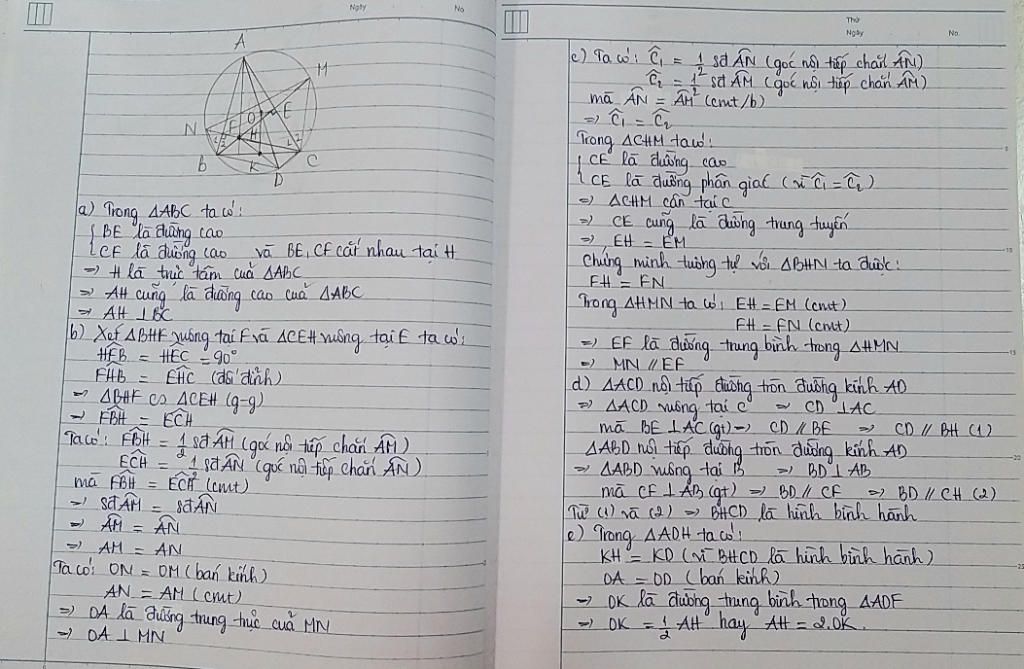 Ngày
No
A
M
N
O
E
F
H
B
K
C
D
a) Trong ΔABC ta có:
{ BE là đường cao
CF là đường cao và BE, CF cắt nhau tại H
⇒ H là trực tâm của ΔABC
⇒ AH cũng là đường cao của ΔABC
⇒ AH ⊥ BC
b) Xét ΔBHF vuông tại F và ΔCEH vuông tại E ta có:
HFB = HEC = 90°
FHB = EHC (đối đỉnh)
⇒ ΔBHF ∽ ΔCEH (g-g)
⇒ FBH = ECH
Ta có: FBH = 1/2 sđ AM (góc nội tiếp chắn AM)
ECH = 1/2 sđ AN (góc nội tiếp chắn AN)
mà FBH = ECH (cmt)
⇒ sđ AM = sđ AN
⇒ AM = AN
⇒ AM = AN
Ta có: ON = OM (bán kính)
AN = AM (cmt)
⇒ OA là đường trung trực của MN
⇒ OA ⊥ MN
Thứ
Ngày
No.
c) Ta có: C₁ = 1/2 sđ AN (góc nội tiếp chắn AN)
C₂ = 1/2 sđ AM (góc nội tiếp chắn AM)
mà AN = AM (cmt/b)
⇒ C₁ = C₂
Trong ΔCHM ta có:
{ CE là đường cao
CE là đường phân giác (vì C₁ = C₂)
⇒ ΔCHM cân tại C
⇒ CE cũng là đường trung tuyến
⇒ EH = EM
Chứng minh tương tự với ΔBHN ta được:
FH = FN
Trong ΔHMN ta có: EH = EM (cmt)
FH = FN (cmt)
⇒ EF là đường trung bình trong ΔHMN
⇒ MN // EF
d) ΔACD nội tiếp đường tròn đường kính AD
⇒ ΔACD vuông tại C ⇒ CD ⊥ AC
mà BE ⊥ AC (gt) ⇒ CD // BE ⇒ CD // BH (1)
ΔABD nội tiếp đường tròn đường kính AD
⇒ ΔABD vuông tại B ⇒ BD ⊥ AB
mà CF ⊥ AB (gt) ⇒ BD // CF ⇒ BD // CH (2)
Từ (1) và (2) ⇒ BHCD là hình bình hành
e) Trong ΔADH ta có:
KH = KD (vì BHCD là hình bình hành)
OA = OD (bán kính)
⇒ OK là đường trung bình trong ΔADF
⇒ OK = 1/2 AH hay AH = 2.OK.